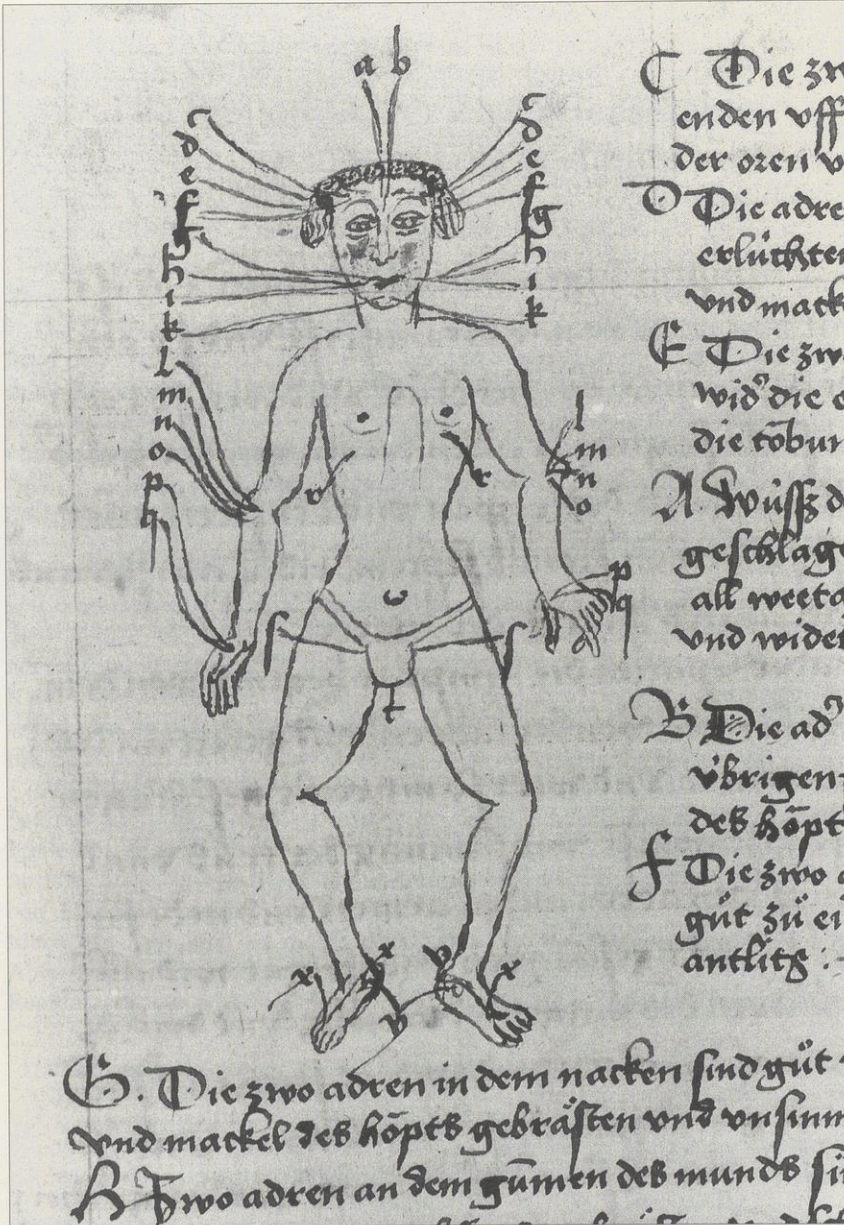 a b
c
d
e
f
g
h
i
k
l
m
n
o
p
q
c
d
e
f
g
h
i
k
l
m
n
o
p
q
r r
ſ ſ
t
x x v x
v
C Die zw
enden vff
der oren v
D Die adre
erlüchten
vnd mack
E Die zwo
wid᾽ die
die tobun
A. Wüſſz d
geſchlage
all weeta
vnd wider
B Die ad᾽
vͤbrigen
des hoͤpts
F Die zwo a
guͦt zuͦ ei
antlits :
G. Die zwo adren in dem nacken ſind guͦt
vnd mackel des hoͤpts gebräſten vnd vnſinn
H Zwo adren an dem gūmen des munds ſi